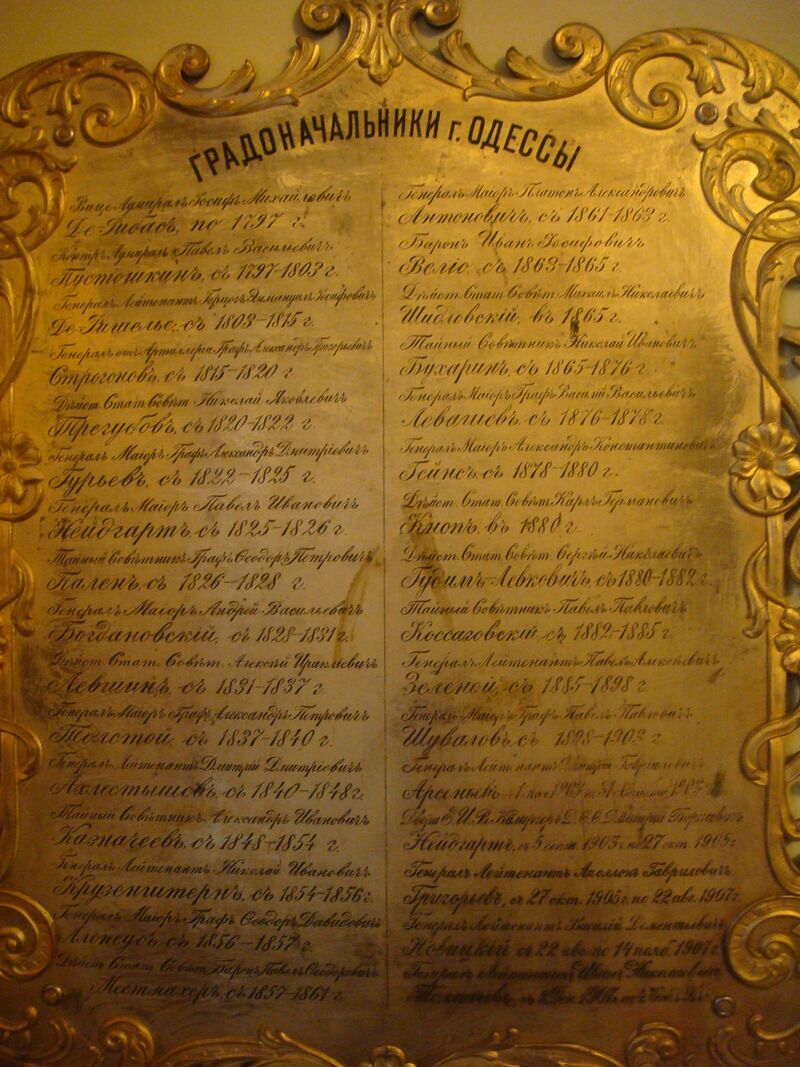 ГРАДОНАЧАЛЬНИКИ г. ОДЕССЫ
Вице Адмиралъ Іосифъ Михайловичъ
Де-Рибасъ, по 1797 г.
Контръ Адмиралъ Павелъ Васильевичъ
Пустошкинъ, съ 1797-1803 г.
Генералъ-Лейтенантъ Герцогъ Эммануилъ Іосифовичъ
Де-Ришелье, съ 1803-1815 г.
Генералъ отъ Артиллеріи Графъ Александръ Григорьевичъ
Строгоновъ, съ 1815-1820 г.
Дѣйст. Стат. Совѣт. Николай Яковлевичъ
Трегубовъ, съ 1820-1822 г.
Генералъ Маіоръ Графъ Александръ Дмитріевичъ
Гурьевъ, съ 1822-1825 г.
Генералъ-Маіоръ Павелъ Ивановичъ
Нейдгартъ, съ 1825-1826 г.
Тайный Совѣтникъ Графъ Ѳеодоръ Петровичъ
Паленъ, съ 1826-1828 г.
Генералъ-Маіоръ Андрей Васильевичъ
Богдановскій, съ 1828-1831 г.
Дѣйст. Стат. Совѣт. Алексѣй Иракліевичъ
Левшинъ, съ 1831-1837 г.
Генералъ-Маіоръ Графъ Александръ Петровичъ
Толстой, съ 1837-1840 г.
Генералъ Лейтенантъ Дмитрій Дмитріевичъ
Ахлестышевъ, съ 1840-1848 г.
Тайный Совѣтникъ Александръ Ивановичъ
Казначеевъ, съ 1848-1854 г.
Генералъ Лейтенантъ Николай Ивановичъ
Крузенштернъ, съ 1854-1856 г.
Генералъ Маіоръ Графъ Ѳеодоръ Давидовичъ
Алопеусъ съ 1856-1857 г.
Дѣйст. Стат. Совѣт. Баронъ Павелъ Ѳеодоровичъ
Местмахеръ, съ 1857-1861 г.
Генералъ Маіоръ Платонъ Александровичъ
Антоновичъ, съ 1861-1863 г.
Баронъ Иванъ Іосифовичъ
Веліо, съ 1863-1865 г.
Дѣйст. Стат. Совѣт. Михаилъ Николаевичъ
Шидловскій, въ 1865 г.
Тайный Совѣтникъ Николай Ивановичъ
Бухаринъ, съ 1865-1876 г.
Генералъ-Маіоръ Графъ Василій Васильевичъ
Левашевъ, съ 1876-1878 г.
Генералъ-Маіоръ Александръ Константиновичъ
Гейнсъ, съ 1878-1880 г.
Дѣйст. Стат. Совѣт. Карлъ Германовичъ
Кнопъ, въ 1880 г.
Дѣйст. Стат. Совѣт. Сергѣй Николаевичъ
Гудимъ-Левковичъ съ 1880-1882 г.
Тайный Совѣтникъ Павелъ Павловичъ
Коссаговскій, съ 1882-1885 г.
Генералъ-Лейтенантъ Павелъ Алексѣевичъ
Зеленой, съ 1885-1898 г.
Генералъ Маіоръ Графъ Павелъ Павловичъ
Шуваловъ, съ 1898-1903 г.
Генералъ-Лейтенантъ Дмитрій Гавриловичъ
Арсеньевъ
Двора Е. И. В. Камергеръ Д. С. С. Дмитрій Борисовичъ
Нейдгартъ, съ 5 сент. 1903 г. по 27 окт. 1905 г.
Генералъ Лейтенантъ Аполлонъ Гавриловичъ
Григорьевъ, съ 27 окт. 1905 г. по 22 авг. 1907 г.
Генералъ-Лейтенантъ Василій Дементьевичъ
Новицкій съ 22 авг по 14 нояб. 1907 г.
Генералъ Николаевичъ
Толмачевъ, съ 2 Дек.